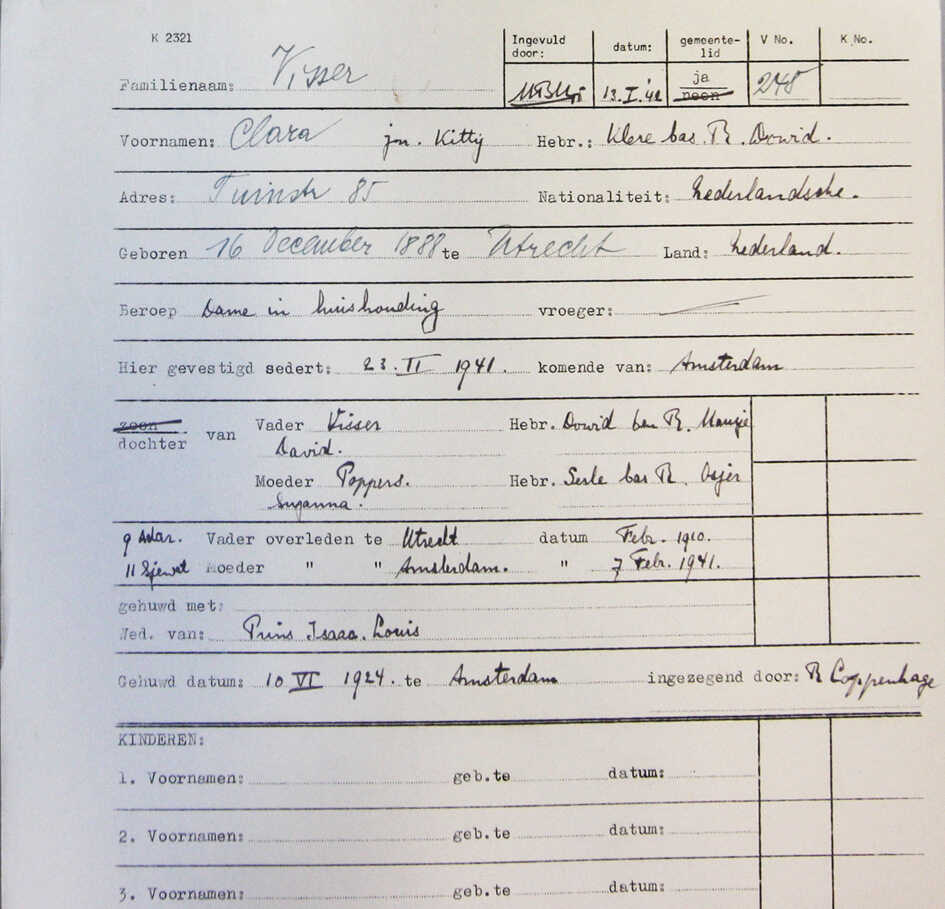 K 2321
Ingevuld door: datum: gemeente-lid V No. K No.
Familienaam: Visser 13.I.'42 ja neen 248
Voornamen: Clara jn. Kitty Hebr.: Klere bas R. Dowid.
Adres: Tuinstr 85 Nationaliteit: Nederlandsche.
Geboren 16 December 1888 te Utrecht Land: Nederland.
Beroep Dame in huishouding vroeger:
Hier gevestigd sedert: 23. II 1941. komende van: Amsterdam
zoon
dochter van Vader Visser Hebr. Dowid ben R.
David.
Moeder Poppers. Hebr. bas R.
Suzanna.
9 Adar. Vader overleden te Utrecht datum Febr. 1910.
11 Sjewat Moeder " " Amsterdam. " 7 Febr. 1941.
gehuwd met:
Wed. van: Prins Isaac Louis
Gehuwd datum: 10 VI 1924. te Amsterdam ingezegend door: R Coppenhage
KINDEREN:
1. Voornamen: geb.te datum:
2. Voornamen: geb.te datum:
3. Voornamen: geb.te datum: